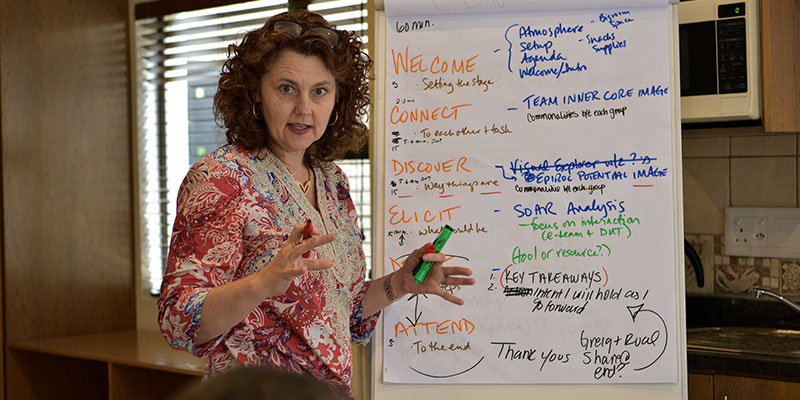 60 min.
WELCOME
· Setting the stage
Atmosphere
Setup
Agenda
Welcome/Intro
Snacks
Supplies
CONNECT
· To each other + task
- TEAM INNER CORE IMAGE
Commonalities b/t each group
DISCOVER
· Way things are
EPIROC POTENTIAL IMAGE
Commonalities b/t each group
ELICIT
- SOAR Analysis
- focus on interaction
(e-team + DMT)
(tool or resource?)
1. (KEY TAKEAWAYS)
2. Intent I will hold as I
go forward
ATTEND
5 · To the end
Thank yous
Greig + Rual
Share @
end?